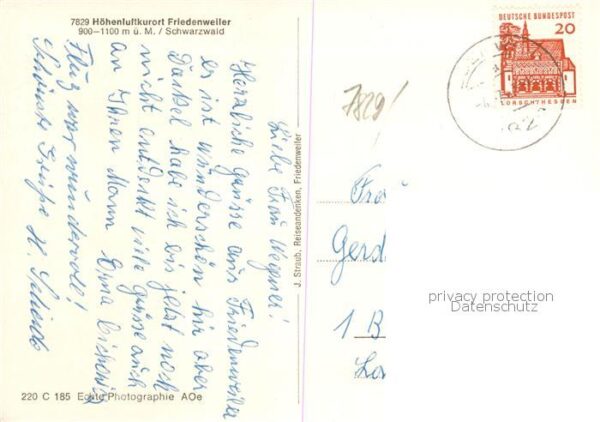 7829 Höhenluftkurort Friedenweiler
900—1100 m ü. M. / Schwarzwald
Liebe Frau Wegner!
Herzliche Grüsse aus Friedenweiler
es ist wunderschön hir aber
Dackel habe ich bis jetzt noch
nicht entdeckt viele Grüsse auch
an Ihren Mann Erna
Flug war wundervoll!
Schönste Grüße H.
J. Straub, Reiseandenken, Friedenweiler
220 C 185 Echte Photographie AOe
DEUTSCHE BUNDESPOST
20
LORSCH/HESSEN
7829
Frau
Gerd
1 B
privacy protection
Datenschutz